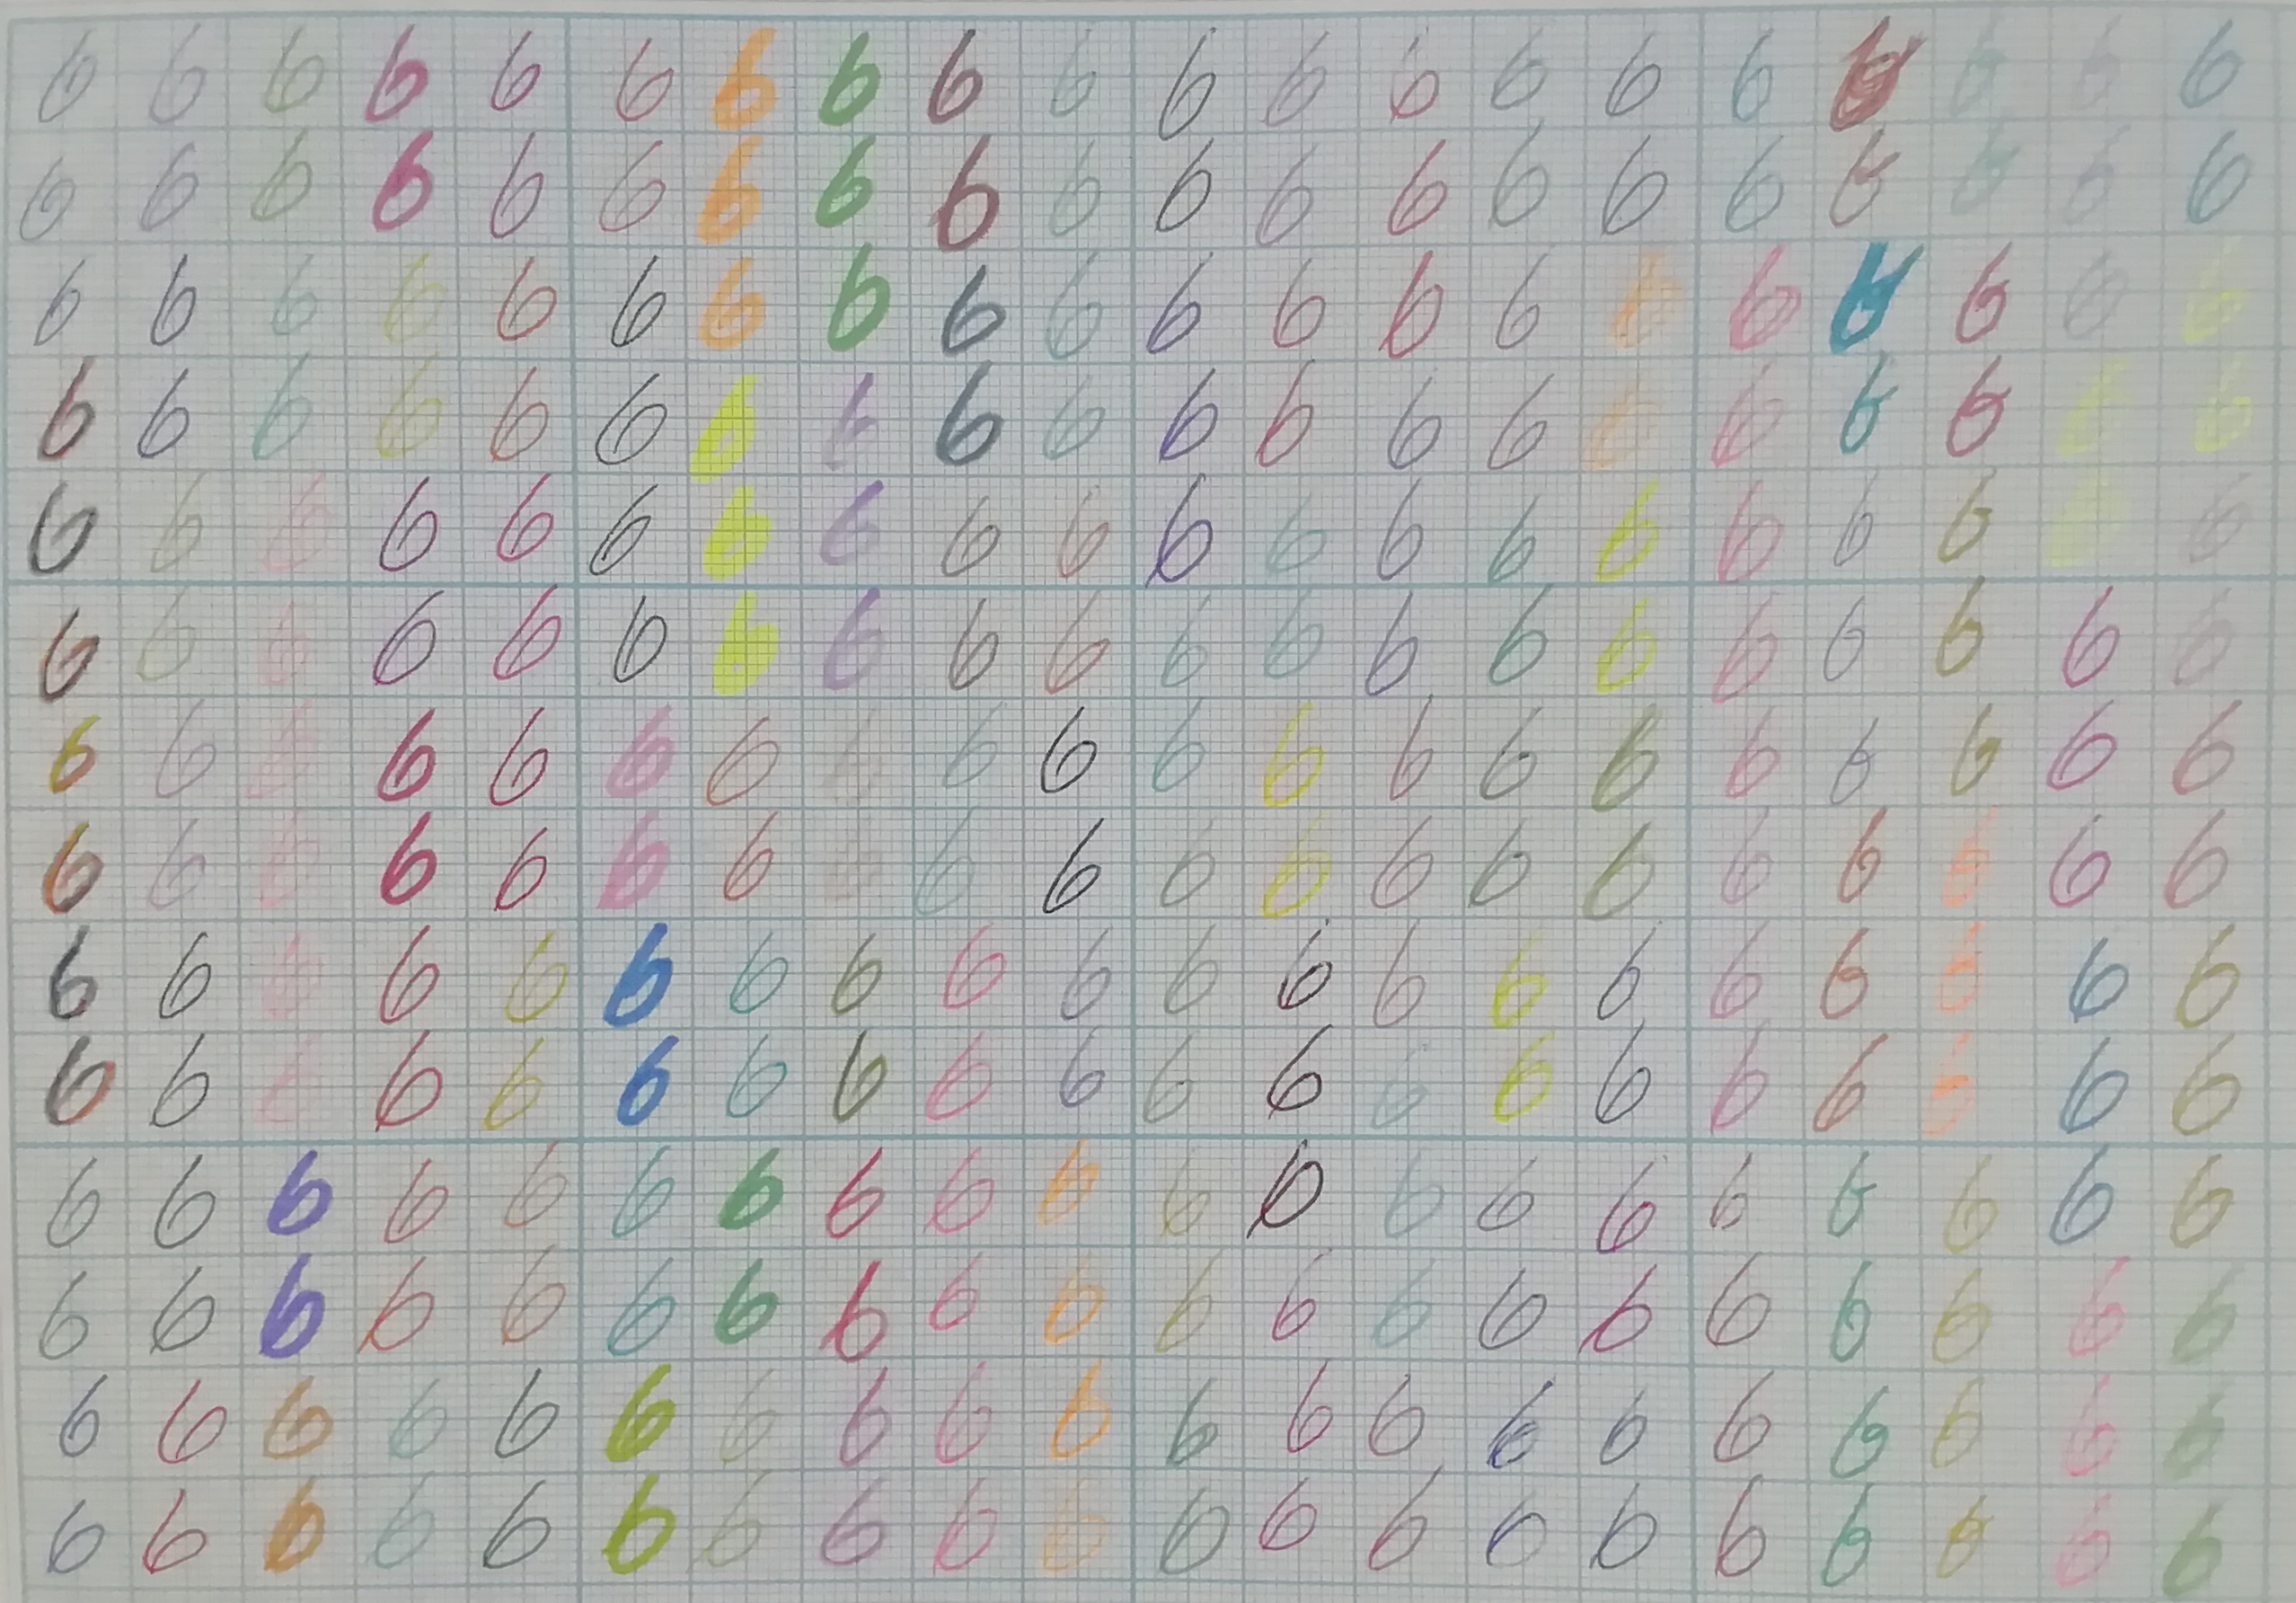 6 6 6 6 6 6 6 6 6 6 6 6 6 6 6 6 6 6 6 6
6 6 6 6 6 6 6 6 6 6 6 6 6 6 6 6 6 6 6 6
6 6 6 6 6 6 6 6 6 6 6 6 6 6 6 6 6 6 6 6
6 6 6 6 6 6 6 6 6 6 6 6 6 6 6 6 6 6 6 6
6 6 6 6 6 6 6 6 6 6 6 6 6 6 6 6 6 6 6 6
6 6 6 6 6 6 6 6 6 6 6 6 6 6 6 6 6 6 6 6
6 6 6 6 6 6 6 6 6 6 6 6 6 6 6 6 6 6 6 6
6 6 6 6 6 6 6 6 6 6 6 6 6 6 6 6 6 6 6 6
6 6 6 6 6 6 6 6 6 6 6 6 6 6 6 6 6 6 6 6
6 6 6 6 6 6 6 6 6 6 6 6 6 6 6 6 6 6 6 6
6 6 6 6 6 6 6 6 6 6 6 6 6 6 6 6 6 6 6 6
6 6 6 6 6 6 6 6 6 6 6 6 6 6 6 6 6 6 6 6
6 6 6 6 6 6 6 6 6 6 6 6 6 6 6 6 6 6 6 6
6 6 6 6 6 6 6 6 6 6 6 6 6 6 6 6 6 6 6 6